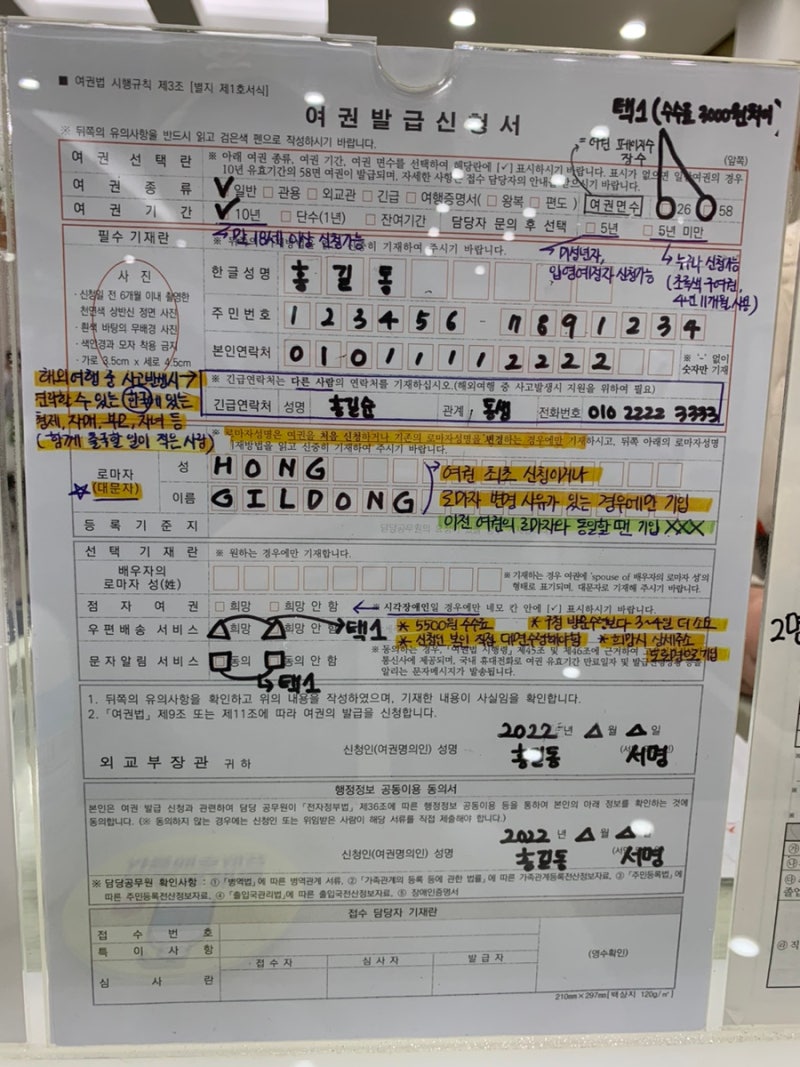 ■ 여권법 시행규칙 제3조 [별지 제1호서식]
여권발급신청서
택1 (수수료 3000원차이)
※ 뒤쪽의 유의사항을 반드시 읽고 검은색 펜으로 작성하시기 바랍니다.
= 여권 페이지수
장수
(앞쪽)
여 권 선 택 란
※ 아래 여권 종류, 여권 기간, 여권 면수를 선택하여 해당란에 [✓] 표시하시기 바랍니다. 표시가 없으면 일반여권의 경우
10년 유효기간의 58면 여권이 발급되며, 자세한 사항은 접수 담당자의 안내를 받으시기 바랍니다.
여 권 종 류
✓일반 □ 관용 □ 외교관 □ 긴급 □ 여행증명서( □ 왕복 □ 편도 )
여권면수
26
58
여 권 기 간
✓10년 □ 단수(1년) □ 잔여기간 담당자 문의 후 선택 □ 5년 □ 5년 미만
만 18세 이상 신청가능
미성년자,
입영예정자 신청가능
누구나 신청가능
(초록색 구여권,
4년 11개월 사용)
필수 기재란
기재하여 주시기 바랍니다.
사 진
- 신청일 전 6개월 이내 촬영한
천연색 상반신 정면 사진
- 흰색 바탕의 무배경 사진
- 색안경과 모자 착용 금지
- 가로 3.5cm x 세로 4.5cm
한글성명
홍길동
주민번호
123456 - 7891234
본인연락처
01011112222
※ '-' 없이
숫자만 기재
해외여행 중 사고발생시
연락할 수 있는 한국에 있는
형제, 자매, 부모, 자녀 등
(함께 출국할 일이 적은 사람)
※ 긴급연락처는 다른 사람의 연락처를 기재하십시오.(해외여행 중 사고발생시 지원을 위하여 필요)
긴급연락처 성명 홍길순 관계 동생 전화번호 010 2222 3333
※ 로마자성명은 여권을 처음 신청하거나 기존의 로마자성명을 변경하는 경우에만 기재하시고, 뒤쪽 아래의 로마자성명
기재방법을 읽고 신중히 기재하여 주시기 바랍니다.
로마자
☆ (대문자)
성
HONG
이름
GILDONG
여권 최초 신청이거나
로마자 변경 사유가 있는 경우에만 기입
이전 여권의 로마자와 동일할 땐 기입 XXX
등 록 기 준 지
선 택 기 재 란
※ 원하는 경우에만 기재합니다.
배우자의
로마자 성(姓)
※ 기재하는 경우 여권에 'spouse of 배우자의 로마자 성'의
형태로 표기되며, 대문자로 기재해 주시기 바랍니다.
점 자 여 권
□ 희망 □ 희망 안 함
← ※ 시각장애인일 경우에만 네모 칸 안에 [✓] 표시하시기 바랍니다.
우편배송 서비스
△희망 △희망 안 함 → 택1
* 5500원 수수료 * 구청 방문수령보다 3-4일 더 소요
* 신청인 본인 직접 대면수령해야함 * 희망시 상세주소
도로명으로 기입
문자알림 서비스
□동의 □동의 안 함
→ 택1
※ 동의하는 경우, 「여권법 시행령」 제45조 및 제46조에 근거하여
통신사에 제공되며, 국내 휴대전화로 여권 유효기간 만료일자 및 발급
알리는 문자메시지가 발송됩니다.
1. 뒤쪽의 유의사항을 확인하고 위의 내용을 작성하였으며, 기재한 내용이 사실임을 확인합니다.
2. 「여권법」 제9조 또는 제11조에 따라 여권의 발급을 신청합니다.
2022 년 △ 월 △ 일
신청인(여권명의인) 성명 홍길동 서명
외교부장관 귀하
행정정보 공동이용 동의서
본인은 여권 발급 신청과 관련하여 담당 공무원이 「전자정부법」 제36조에 따른 행정정보 공동이용 등을 통하여 본인의 아래 정보를 확인하는 것에
동의합니다. (※ 동의하지 않는 경우에는 신청인 또는 위임받은 사람이 해당 서류를 직접 제출해야 합니다.)
2022 년 △ 월 △ 일
신청인(여권명의인) 성명 홍길동 서명
※ 담당공무원 확인사항 : ① 「병역법」에 따른 병역관계 서류, ② 「가족관계의 등록 등에 관한 법률」에 따른 가족관계등록전산정보자료, ③ 「주민등록법」에
따른 주민등록전산정보자료, ④ 「출입국관리법」에 따른 출입국전산정보자료, ⑤ 장애인증명서
접수 담당자 기재란
접 수 번 호
특 이 사 항
심 사 란
접 수 자
심 사 자
발 급 자
(영수확인)
210mm×297mm[백상지 120g/㎡]
2명